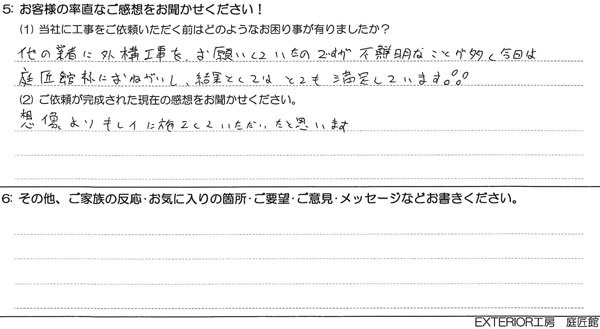 5: お客様の率直なご感想をお聞かせください！
(1) 当社に工事をご依頼いただく前はどのようなお困り事が有りましたか？
他の業者に外構工事を、お願いしていたのですが 不鮮明なことが多く今回は
庭匠館様におねがいし、結果としては とても 満足しています。
(2) ご依頼が完成された現在の感想をお聞かせください。
想像よりもキレイに施工していただいたと思います
6: その他、ご家族の反応・お気に入りの箇所・ご要望・ご意見・メッセージなどお書きください。
EXTERIOR工房 庭匠館